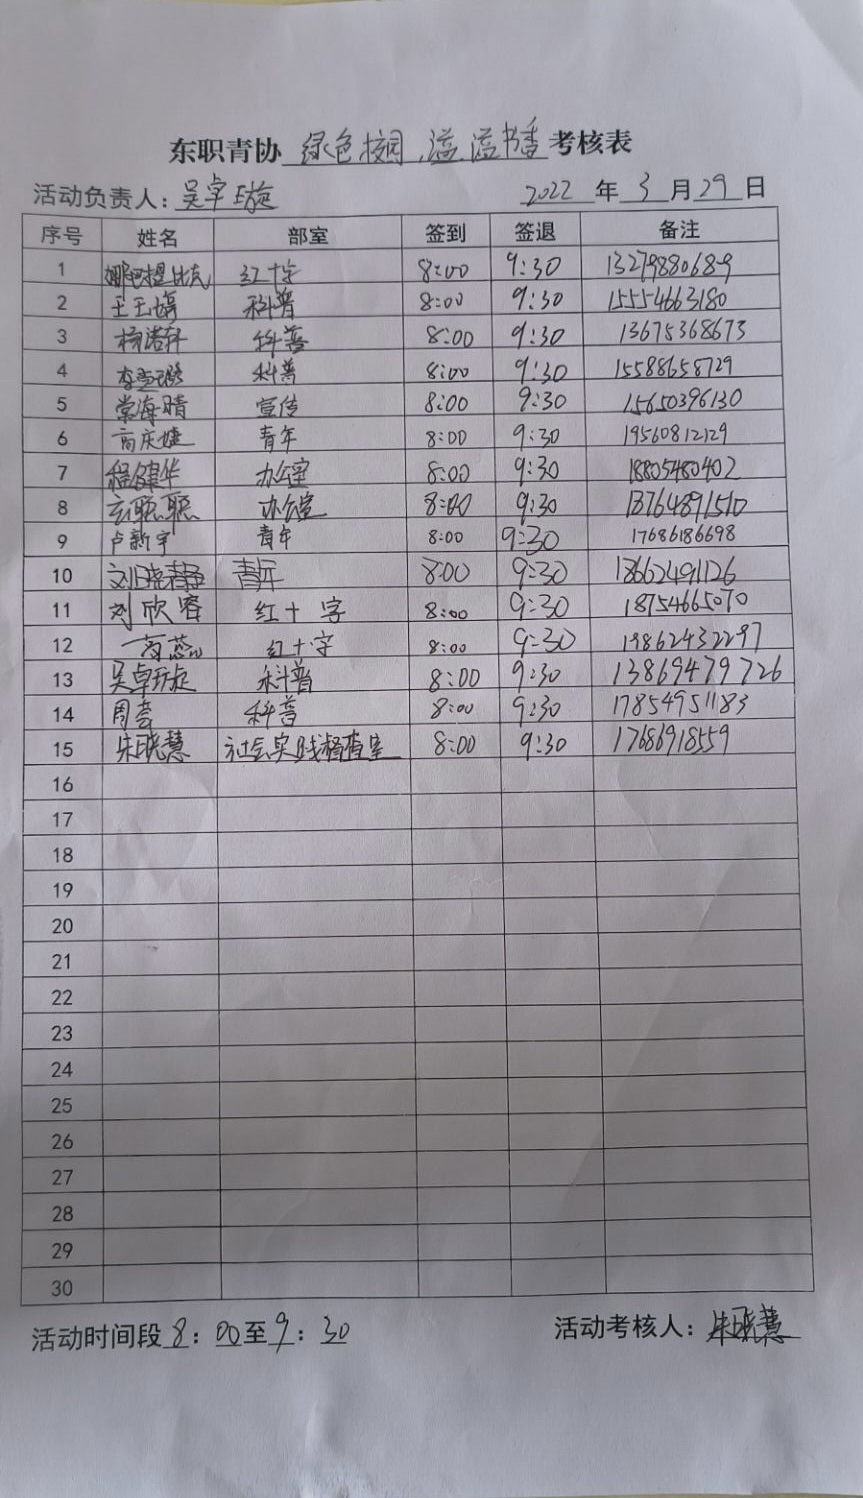 东职青协 绿色校园，溢溢书香 考核表
活动负责人：吴卓璇 2022 年 3 月 29 日
序号 姓名 部室 签到 签退 备注
1 红十字 8:00 9:30 13279880689
2 王玉婷 科普 8:00 9:30 15554663180
3 杨诺轩 科普 8:00 9:30 13675368673
4 科普 8:00 9:30 15588658729
5 常海晴 宣传 8:00 9:30 15650396130
6 高庆婕 青年 8:00 9:30 19560812129
7 程健华 办公室 8:00 9:30 18805480402
8 玄聪聪 办公室 8:00 9:30 13764891510
9 卢新宇 青年 8:00 9:30 17686186698
10 刘晓静 8:00 9:30 18662491126
11 刘欣睿 红十字 8:00 9:30 18754665070
12 高蕊 红十字 8:00 9:30 19862432297
13 吴卓璇 科普 8:00 9:30 13869479726
14 周芸 科普 8:00 9:30 17854951183
15 朱晓慧 社会实践稽查室 8:00 9:30 17686918559
16
17
18
19
20
21
22
23
24
25
26
27
28
29
30
活动时间段 8：00至9：30 活动考核人：朱晓慧